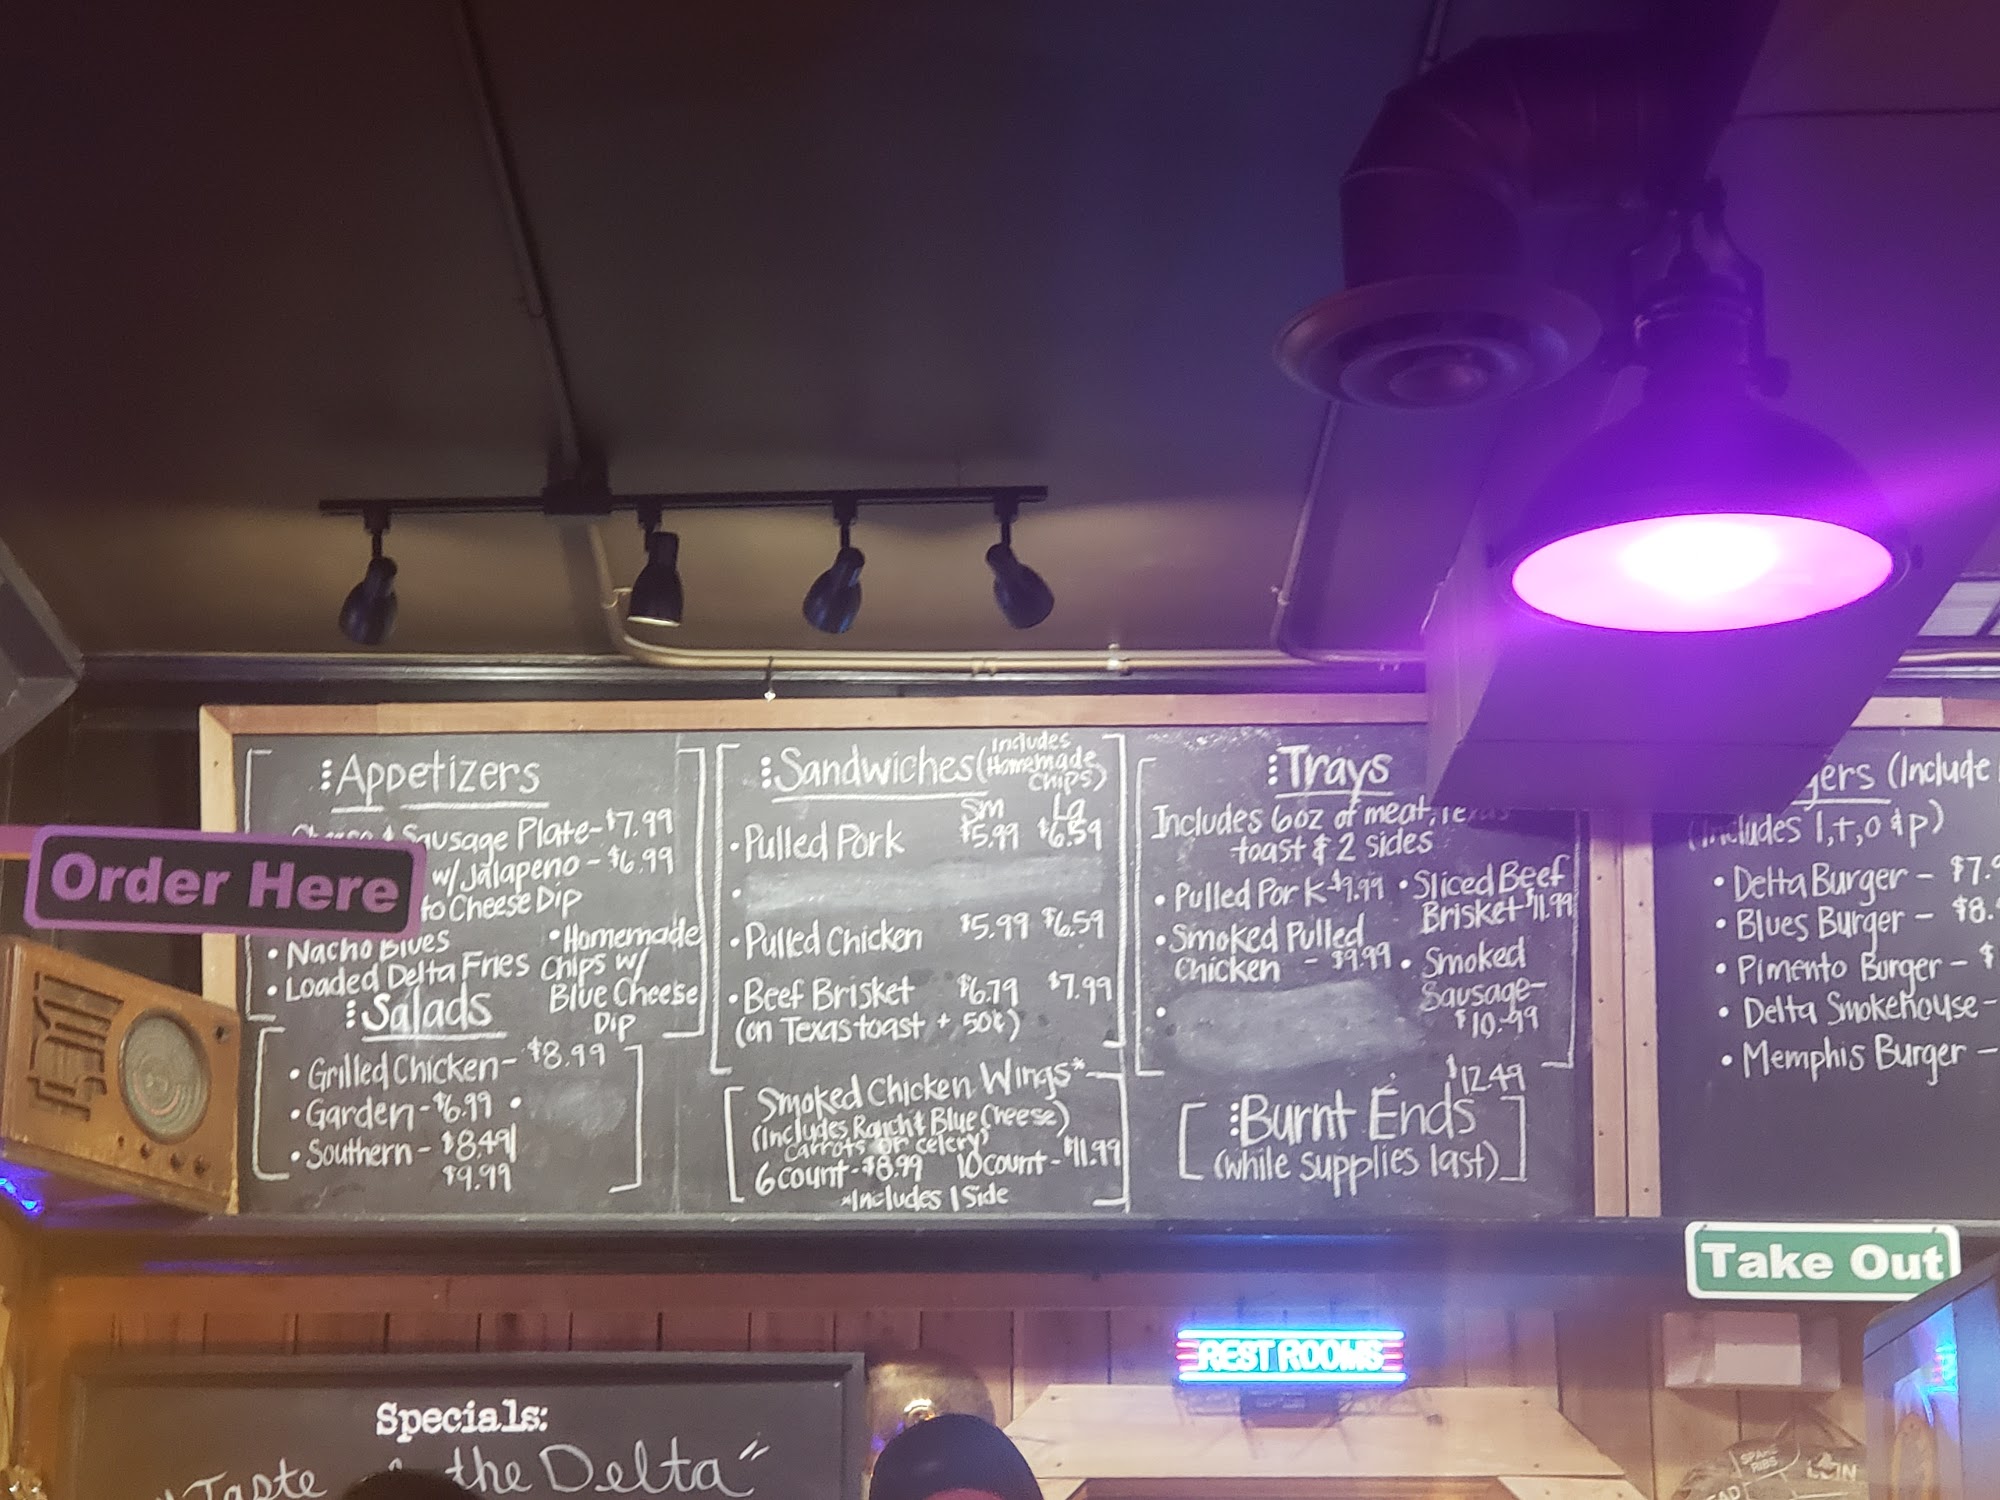 Appetizers
Sausage Plate-$7.99
w/Jalapeno - $6.99
to Cheese Dip
• Nacho Blues
• Loaded Delta Fries
• Homemade
Chips w/
Blue Cheese
Dip
Order Here
Salads
• Grilled Chicken- $8.99
• Garden - $6.99 •
• Southern - $8.49
$9.99
Sandwiches (Includes
Homemade
Chips)
Sm Lg
• Pulled Pork $5.99 $6.59
•
• Pulled Chicken $5.99 $6.59
• Beef Brisket $6.79 $7.99
(on Texas toast + 50¢)
Smoked Chicken Wings*
(includes Ranch & Blue Cheese)
carrots or celery)
6 count-$8.99 10 count-$11.99
*Includes 1 Side
Trays
Includes 6oz of meat,
toast & 2 sides
• Pulled Pork $9.99
• Smoked Pulled
Chicken - $9.99
•
• Sliced Beef
Brisket $11.99
• Smoked
Sausage-
$10.99
$12.49
Burnt Ends
(while supplies last)
gers (Include
(Includes l,t,o & p)
• Delta Burger - $7.9
• Blues Burger - $8.
• Pimento Burger - $
• Delta Smokehouse -
• Memphis Burger -
Take Out
REST ROOMS
Specials:
"Taste the Delta"
SPARE
RIBS
LOIN